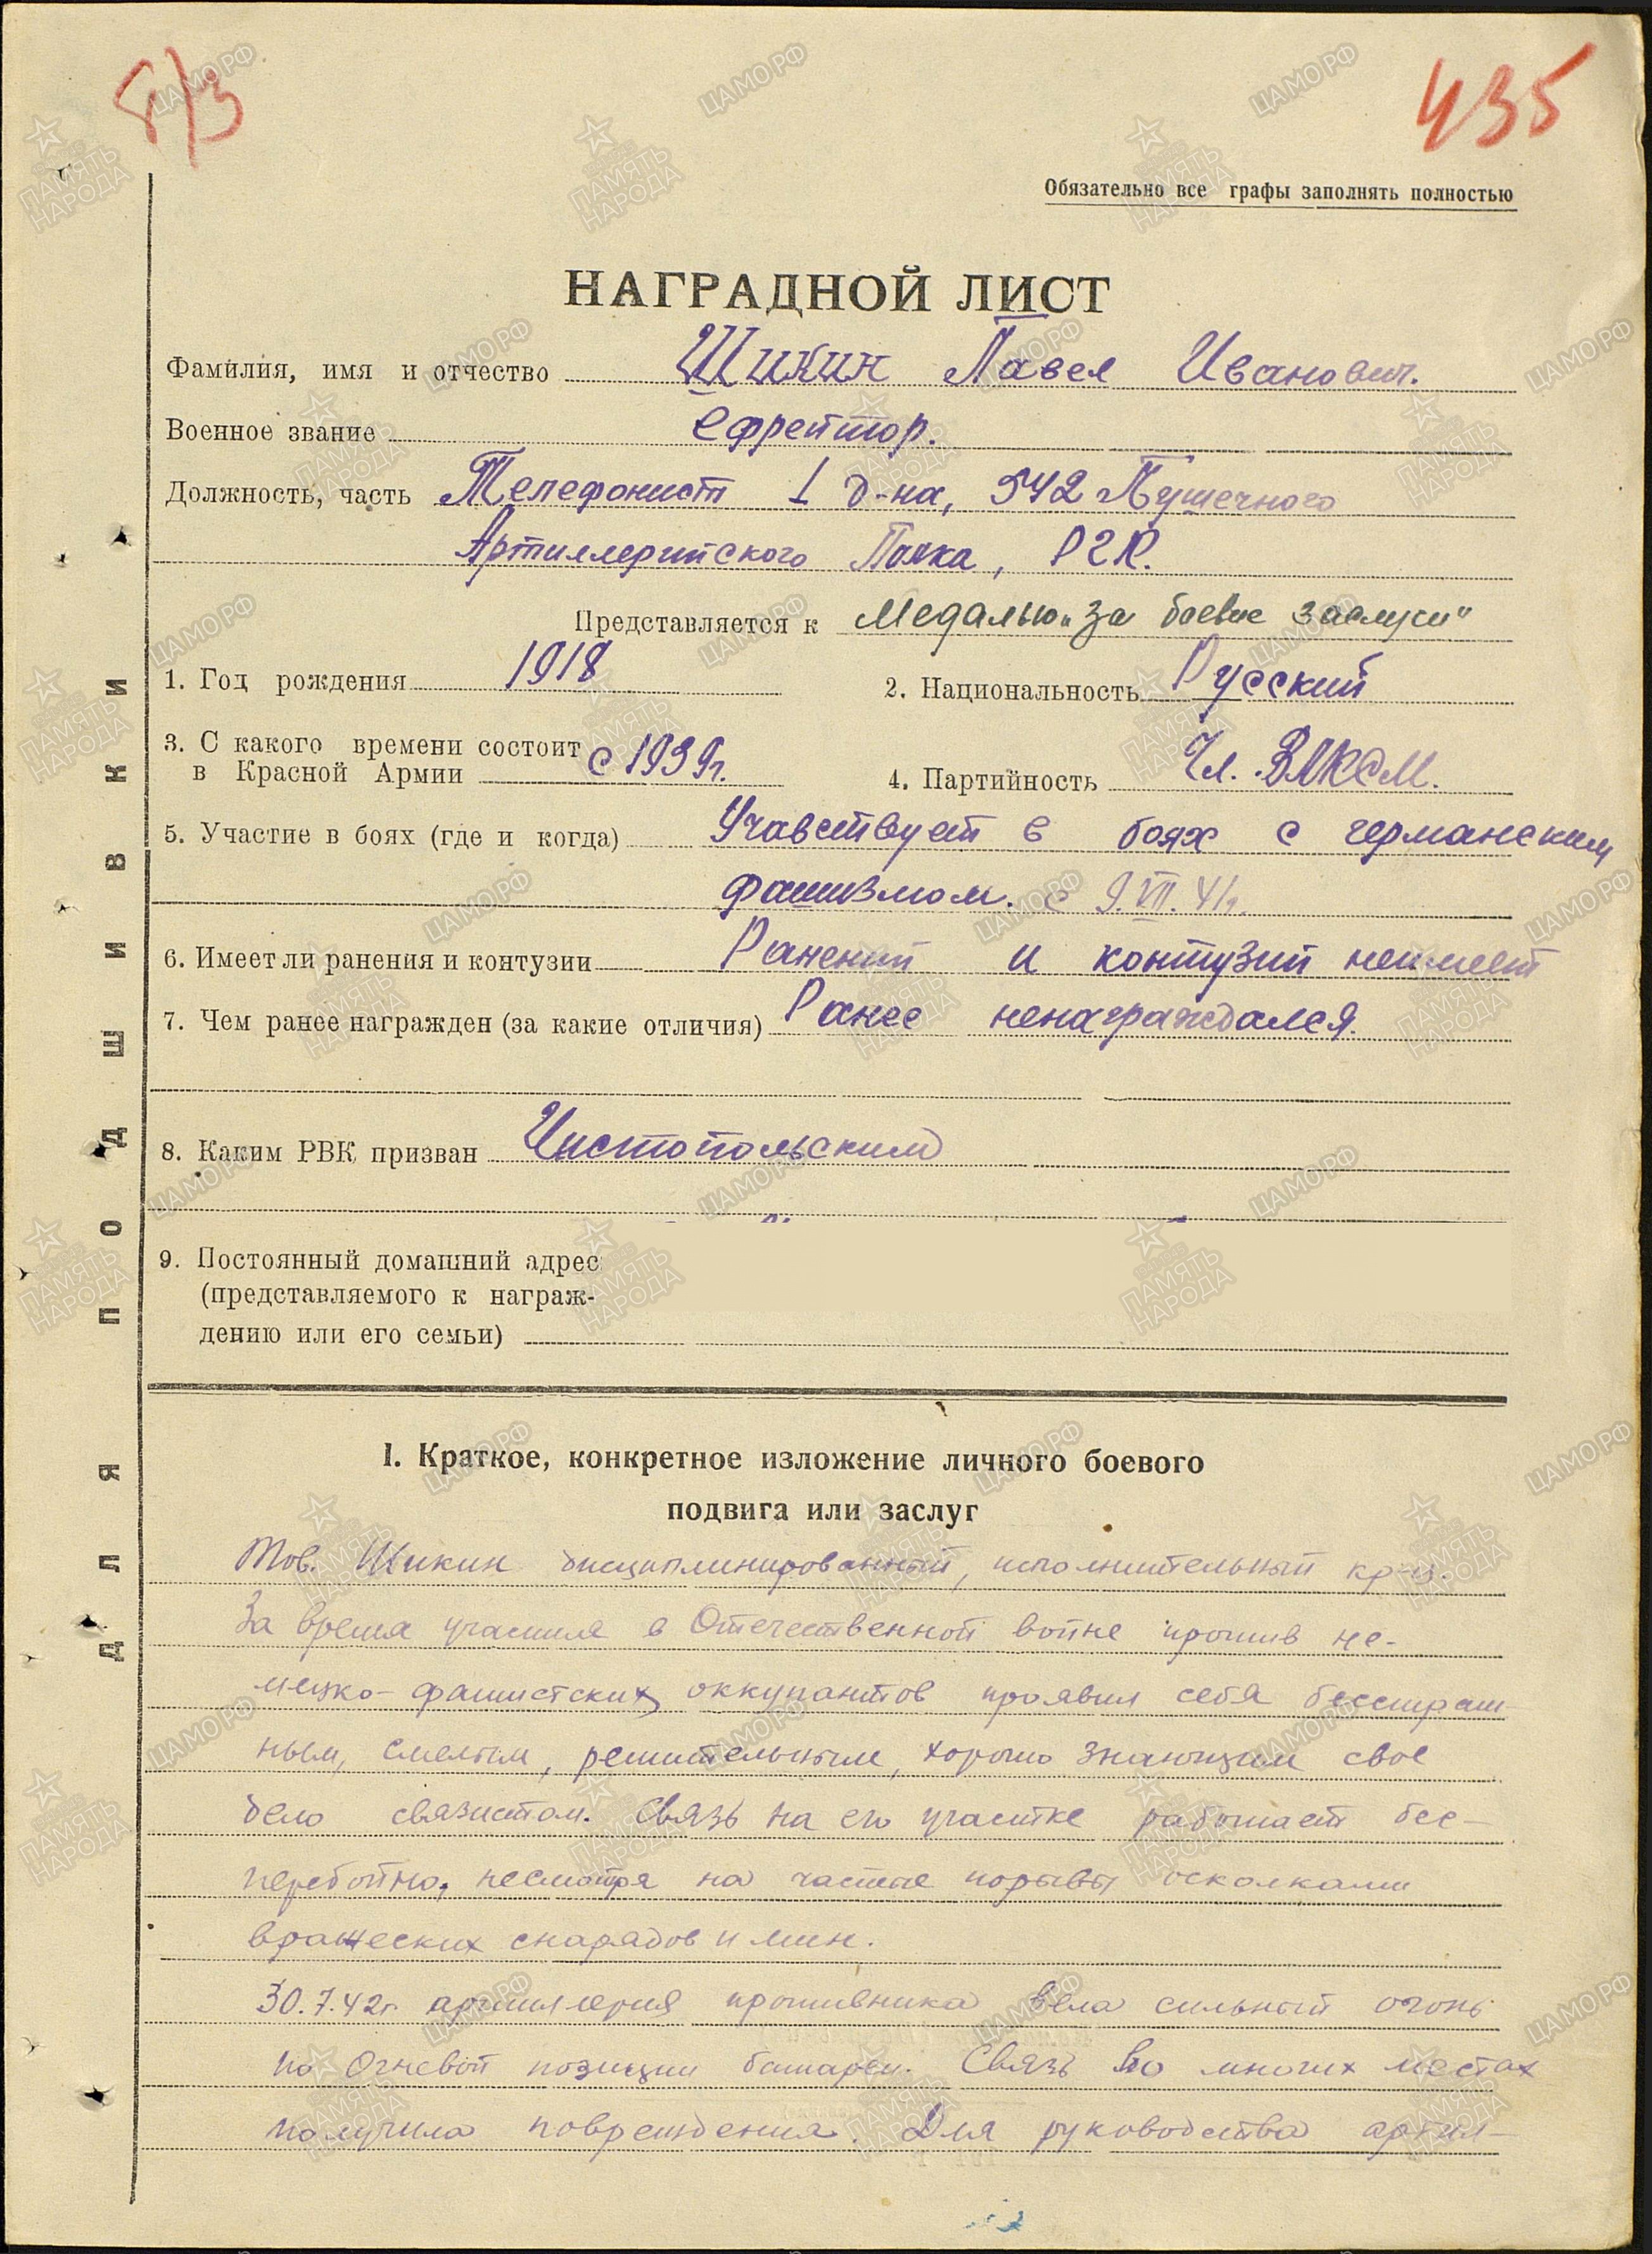 8/3
435
Обязательно все графы заполнять полностью
НАГРАДНОЙ ЛИСТ
Фамилия, имя и отчество Шикин Павел Иванович.
Военное звание Ефрейтор.
Должность, часть Телефонист 1 д-на, 542 Пушечного
Артиллерийского Полка, РГК.
Представляется к Медалью „За боевые заслуги"
1. Год рождения 1918
2. Национальность Русский
3. С какого времени состоит в Красной Армии с 1939г.
4. Партийность Чл. ВЛКСМ.
5. Участие в боях (где и когда) Учавствует в боях с германским
фашизмом. с 9.VII.41г.
6. Имеет ли ранения и контузии Ранений и контузий неимеет
7. Чем ранее награжден (за какие отличия) Ранее ненаграждался.
8. Каким РВК призван Чистопольским
9. Постоянный домашний адрес
(представляемого к награж-
дению или его семьи)
ДЛЯ ПОДШИВКИ
I. Краткое, конкретное изложение личного боевого
подвига или заслуг
Тов. Шикин дисциплинированный, исполнительный кр-ц.
За время участия в Отечественной войне против не-
мецко-фашистских оккупантов проявил себя бесстраш-
ным, смелым, решительным, хорошо знающим свое
дело связистом. Связь на его участке работает бес-
перебойно, несмотря на частые порывы осколками
вражеских снарядов и мин.
30.7.42г. артиллерия противника вела сильный огонь
по Огневой позиции батареи. Связь во многих местах
получила повреждения. Для руководства артил-
ПАМЯТЬ НАРОДА
ЦАМО.РФ